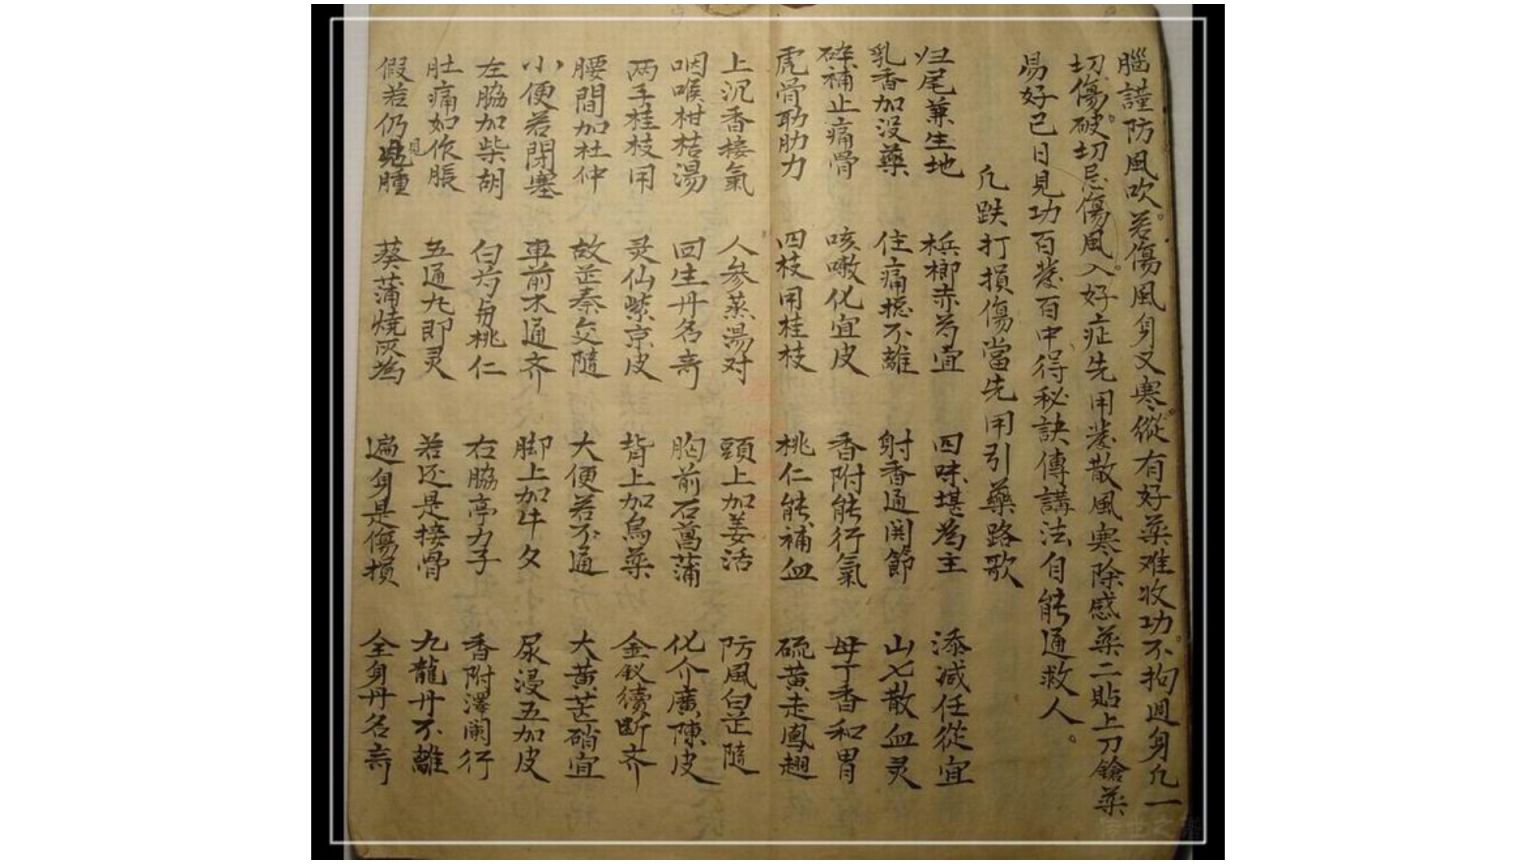 腦謹防風吹。若傷風身又寒。縱有好藥难收功。不拘週身凡一
切傷。破切忌傷風。入好症先用發散風寒除感藥二貼上刀鎗藥
易好已日見功百發百中得秘訣傳講法自能通救人。
凡跌打損傷當先用引藥路歌
归尾兼生地 梹榔赤芍宜 四味堪為主 添減任從宜
乳香加没藥 住痛搃不離 射香通関節 山七散血灵
碎補止痛骨 咳嗽化宜皮 香附能行氣 母丁香和胃
虎骨助肋力 四枝用桂枝 桃仁能補血 硫黄走鳳翅
上沉香接氣 人參蒸湯对 頭上加羌活 防風白芷隨
咽喉柑桔湯 回生丹名竒 胸前石菖蒲 化介廣陳皮
两手桂枝用 灵仙紫京皮 背上加烏藥 金釵續断齐
腰間加杜仲 故芷秦艽隨 大便若不通 大黄芒硝宜
小便若閉塞 車前木通齐 脚上加牛夕 尿浸五加皮
左脇加柴胡 白芍与桃仁 右脇亭力子 香附澤阑行
肚痛如作脹 五通丸即灵 若还是接骨 九龍丹不離
假若仍見腫 葵蒲燒灰為 遍身是傷損 全身丹名竒